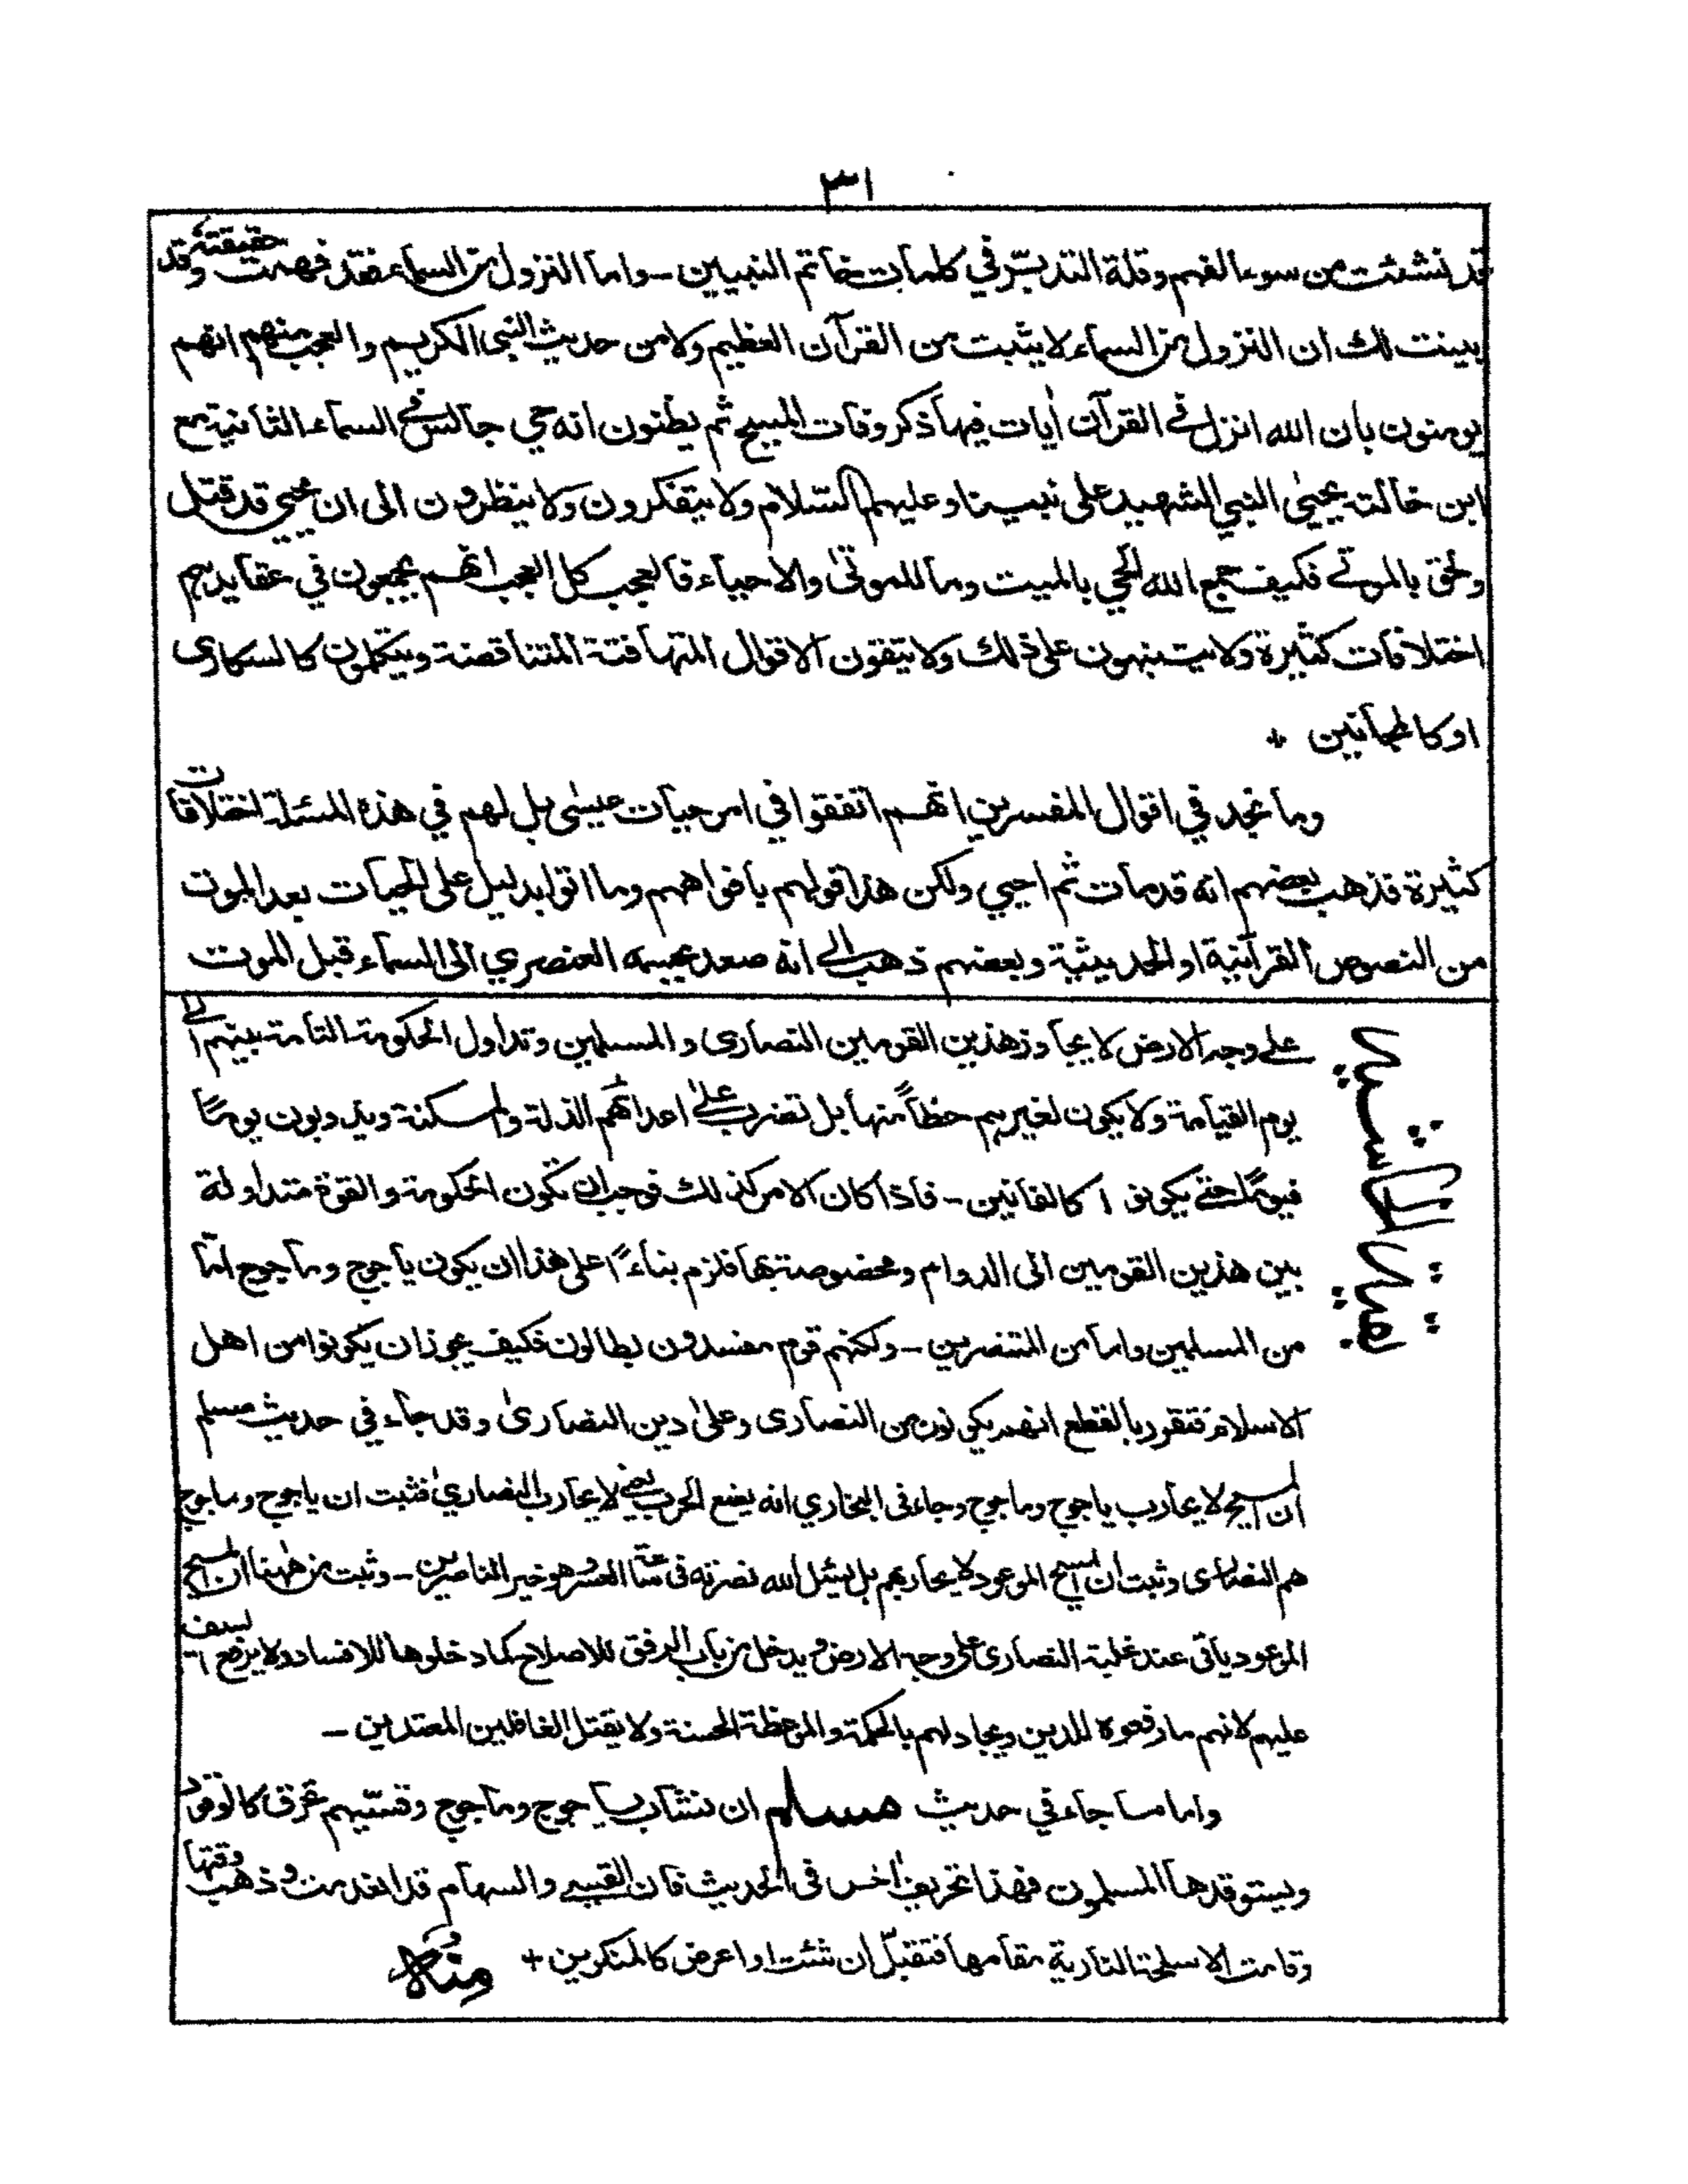 ٣١
قد نشئت من سوء الفهم وقلة التدبّر في كلمات خاتم النبيين - واما النزول من السماء فقد فهمت حقيقته وقد
بينت لك ان النزول من السماء لا يثبت من القرآن العظيم ولا من حديث النبي الكريم والعجب منهم انهم
يومنون بأن الله انزل في القرآن اٰيات فيها ذكر وفات المسيح ثم يظنون انه حي جالس في السماء الثانية مع
ابن خالته يحيىٰ النبي الشهيد على نبينا وعليهم السّلام ولا يتفكرون ولا ينظرون الى ان يحيي قد قتل
ولحق بالموتى فكيف جمع الله الحي بالميت وما للموتىٰ والاحياء فالعجب كل العجب انهم يجمعون في عقايدهم
اختلافات كثيرة ولا يتنبهون على ذلك ولا يتقون الاقوال المتهافتة المتناقضة ويتكلمون كالسكارى
او كالمجانين +
وما تجد في اقوال المفسرين انهم اتفقوا في امر حيات عيسٰى بل لهم في هذه المسئلة اختلافات
كثيرة فذهب بعضهم انه قد مات ثم احيي ولكن هذا قولهم بافواههم وما اتوا بدليل على الحيات بعد الموت
من النصوص القرآنية او الحديثية وبعضهم ذهب الى انه صعد بجسمه العنصري الى السماء قبل الموت
بقية الحاشية
على وجه الارض لا يجاوز هذين القومين النصارى والمسلمين وتداول الحكومة التامة بينهم الى
يوم القيامة ولا يكون لغيرهم حظاً منها بل تضرب علىٰ اعدائهم الذلة والمسكنة ويذوبون يومًا
فيومًا حتى يكونوا كالفانين - فاذا كان الامر كذلك فوجب ان تكون الحكومة والقوة متداولة
بين هذين القومين الى الدوام ومخصوصة بها فلزم بناءً على هذا ان يكون ياجوج وماجوج امّا
من المسلمين واما من المتنصرين - ولكنهم قوم مفسدون بطالون فكيف يجوز ان يكونوا من اهل
الاسلام فتقرر بالقطع انهم يكونون من النصارى وعلىٰ دين النصارىٰ وقد جاء في حديث مسلم
ان المسيح لا يحارب ياجوج وماجوج وجاء في البخاري انه يضع الحرب يعني لا يحارب النصاريٰ فثبت ان ياجوج وماجوج
هم النصارى وثبت ان المسيح الموعود لا يحاربهم بل يسئل الله نصرته في ساعة العسر وهو خير الناصرين - وثبت من ههنا ان المسيح
الموعود ياتى عند غلبة النصارى على وجه الارض ويدخل من باب الرفق للاصلاح كما دخلوها للافساد ولا يرفع السيف
عليهم لانهم ما رفعوه للدين ويجادلهم بالحكمة والموعظة الحسنة ولا يقتل الغافلين المعتدين -
واما ما جاء في حديث مسلم ان نشاب ياجوج وماجوج وقسيّهم تحرق كالوقود
ويستوقدها المسلمون فهذا تحريف اٰخر في الحديث فان القسي والسهام قد انعدمت وذهب وقتها
وقامت الاسلحة النارية مقامها فتقبّل ان شئت او اعرض كالمنكرين + منه